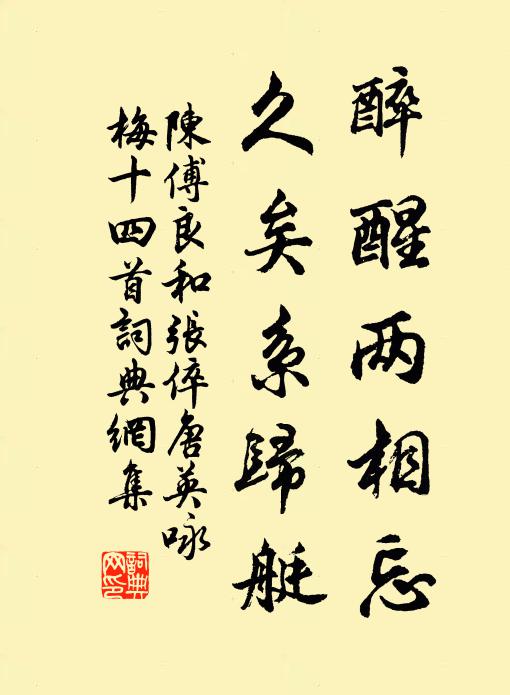 醉醒两相忘
久矣系歸艇
陳傅良和張倅唐英咏
梅十四首詞典網集
詞典网印